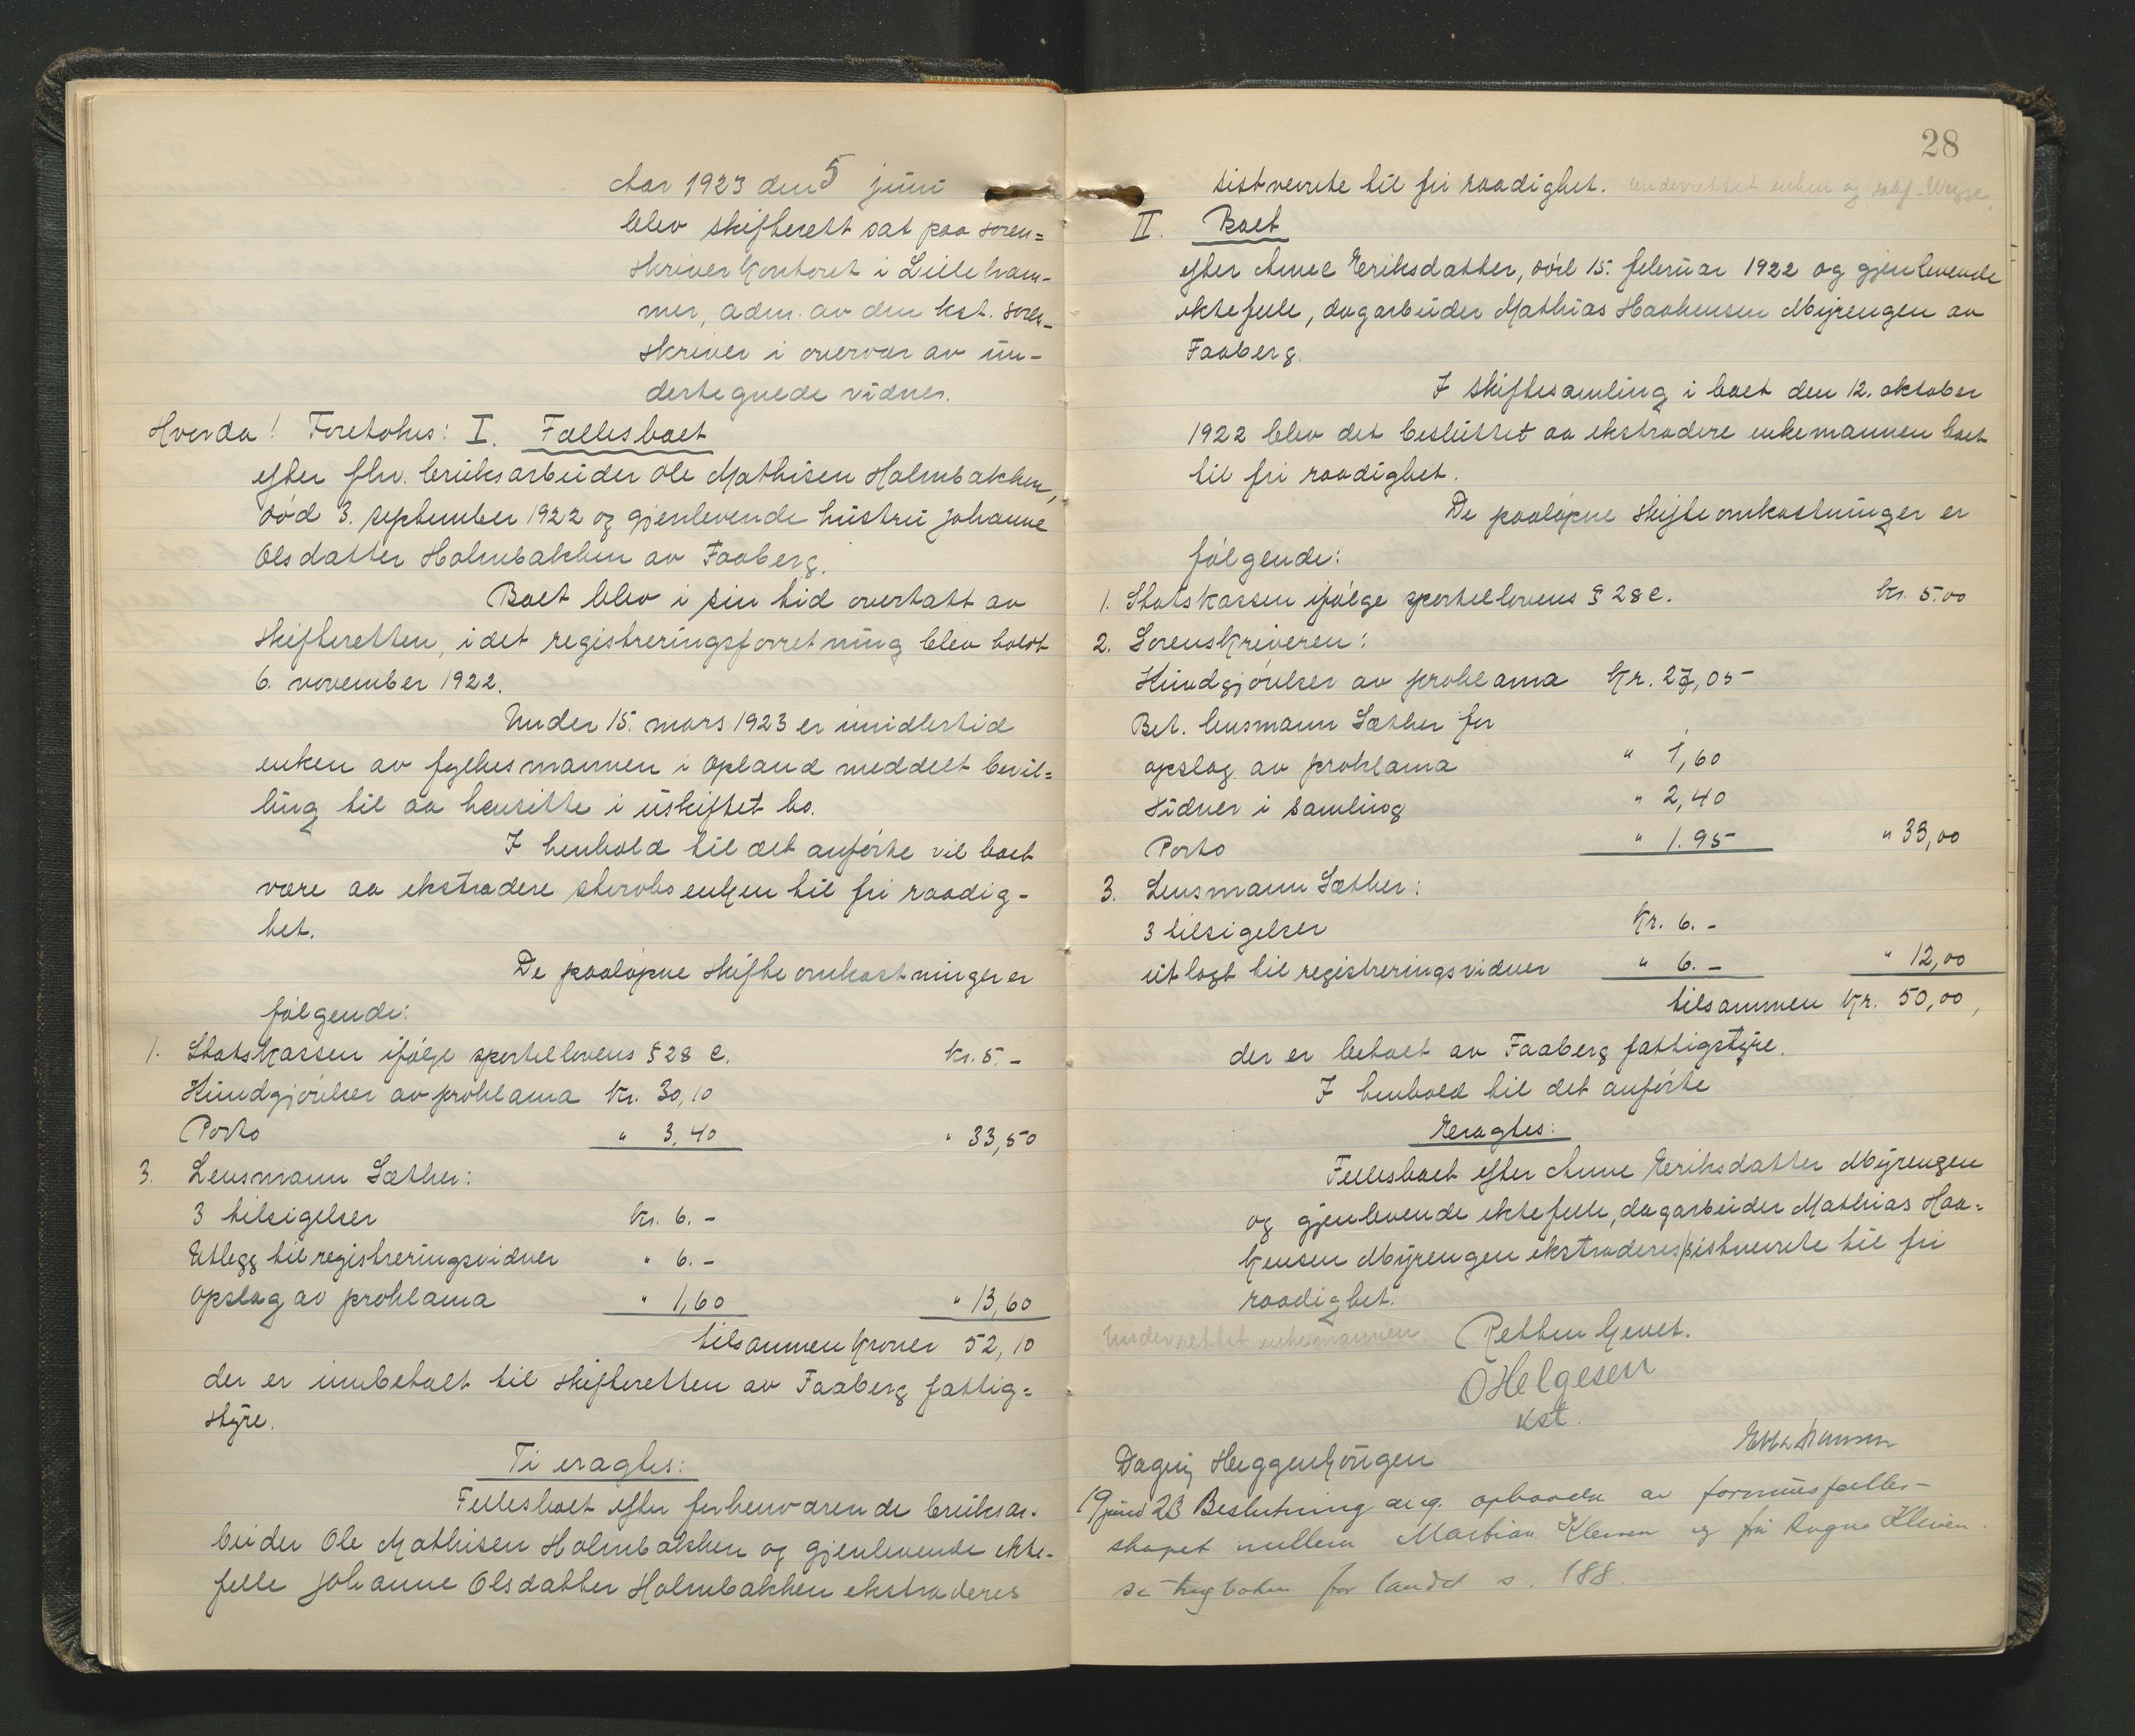 Aar 1923 den 5 juni
blev skifterett sat paa soren=
skriverkontoret i Lilleham-
mer, adm. av den kst. soren-
skriver i overvær av un-
dertegnede vidner.
Hvorda! Foretokes: I. Fællesboet
efter fhv. bruksarbeider Ole Mathisen Holmbakken,
død 3. september 1922 og gjenlevende hustru Johanne
Olsdatter Holmbakken av Faaberg.
Boet blev i sin tid overtatt av
skifteretten, idet registreringsforretning blev holdt
6. november 1922.
Under 15. mars 1923 er imidlertid
enken av fylkesmannen i Opland meddelt bevil=
ling til aa hensitte i uskiftet bo.
I henhold til det anførte vil boet
være aa ekstradere stervbo enken til fri raadig-
het.
De paaløpne skifteomkostninger er
følgende:
1. Statskassen ifølge sportellovens § 28 c. kr. 5.-
Kundgjørelser av proklama kr. 30,10
Porto " 3,40 " 33,50
3. Lensmann Sæther:
3 tilsigelser kr. 6.-
Utlegg til registreringsvidner " 6.-
Opslag av proklama " 1,60 " 13,60
tilsammen kroner 52,10
der er innbetalt til skifteretten av Faaberg fattig=
styre.
Ti eragtes:
Fellesboet efter forhenværende bruksar-
beider Ole Mathisen Holmbakken og gjenlevende ekte-
felle Johanne Olsdatter Holmbakken ekstraderes
28
sistnevnte til fri raadighet. Underrettet enken og
II. Boet
efter Anne Eriksdatter, død 15. februar 1922 og gjenlevende
ektefelle, dagarbeider Mathias Haakensen Myrengen av
Faaberg.
I skiftesamling i boet den 12. oktober
1922 blev det besluttet aa ekstradere enkemannen boet
til fri raadighet.
De paaløpne skifteomkostninger er
følgende:
1. Statskassen ifølge sportellovens § 28 c. kr. 5.00
2. Sorenskriveren:
Kundgjørelser av proklama kr. 27,05
Bet. lensmann Sæther for
opslag av proklama " 1,60
Vidner i samling " 2,40
Porto " 1.95 " 33,00
3. Lensmann Sæther:
3 tilsigelser kr. 6.-
utlagt til registreringsvidner " 6.- " 12,00
tilsammen kr. 50,00,
der er betalt av Faaberg fattigstyre.
I henhold til det anførte
Eragtes:
Fellesboet efter Anne Eriksdatter Myrengen
og gjenlevende ektefelle, dagarbeider Mathias Haa=
kensen Myrengen ekstraderes sistnevnte til fri
raadighet.
Underrettet enkemannen Retten hevet.
O Helgesen
kst.
Dagny Heggenhougen
19 juni 23 Beslutning ang. ophævelse av formuesfælles-
skapet mellem Martian Kleven og fru Ragna Kleven.
se tingboken for landet s. 188.